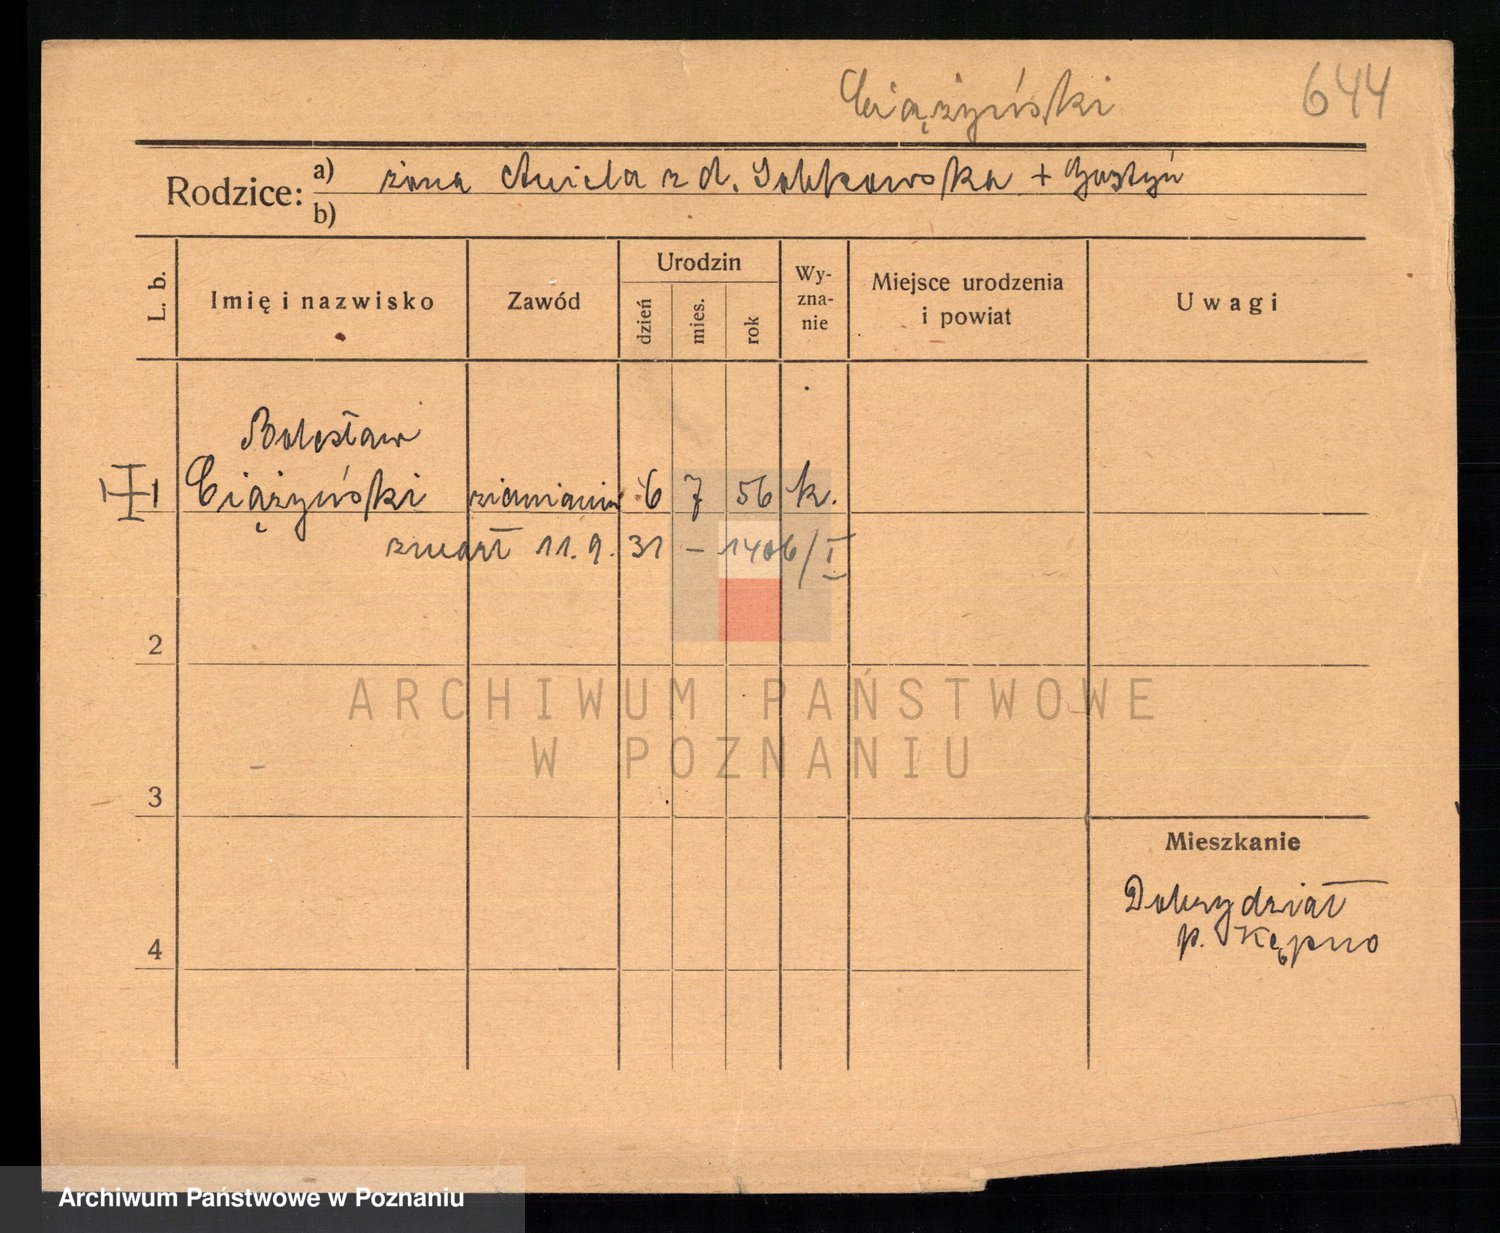 Ciążyński 644
Rodzice: a) żona Aniela z d. Sokołowska + Gostyń
b)
L. b.
Imię i nazwisko
Zawód
Urodzin
dzień
mies.
rok
Wy-
zna-
nie
Miejsce urodzenia
i powiat
Uwagi
Bolesław
1 Ciążyński ziemianin 6 7 56 k.
zmarł 11.9.31 – 1406/I
2
ARCHIWUM PAŃSTWOWE
W POZNANIU
3
Mieszkanie
Dobrydział
p. Kępno
4
Archiwum Państwowe w Poznaniu